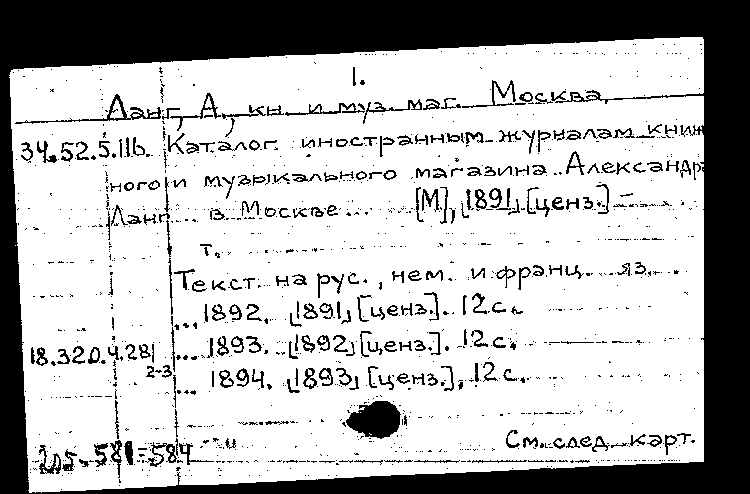 1.
Ланг, А., кн. и муз. маг. Москва.
34.52.5.116. Каталог иностранным журналам книж
ного и музыкального магазина Александра
Ланг... в Москве... [М], 1891 [ценз.] –
т.
Текст на рус., нем. и франц. яз.
...1892. 1891 [ценз.]. 12 с.
18.320.4.281 ... 1893. 1892 [ценз.]. 12 с.
2-3 ... 1894. 1893 [ценз.], 12 с.
См. след. карт.